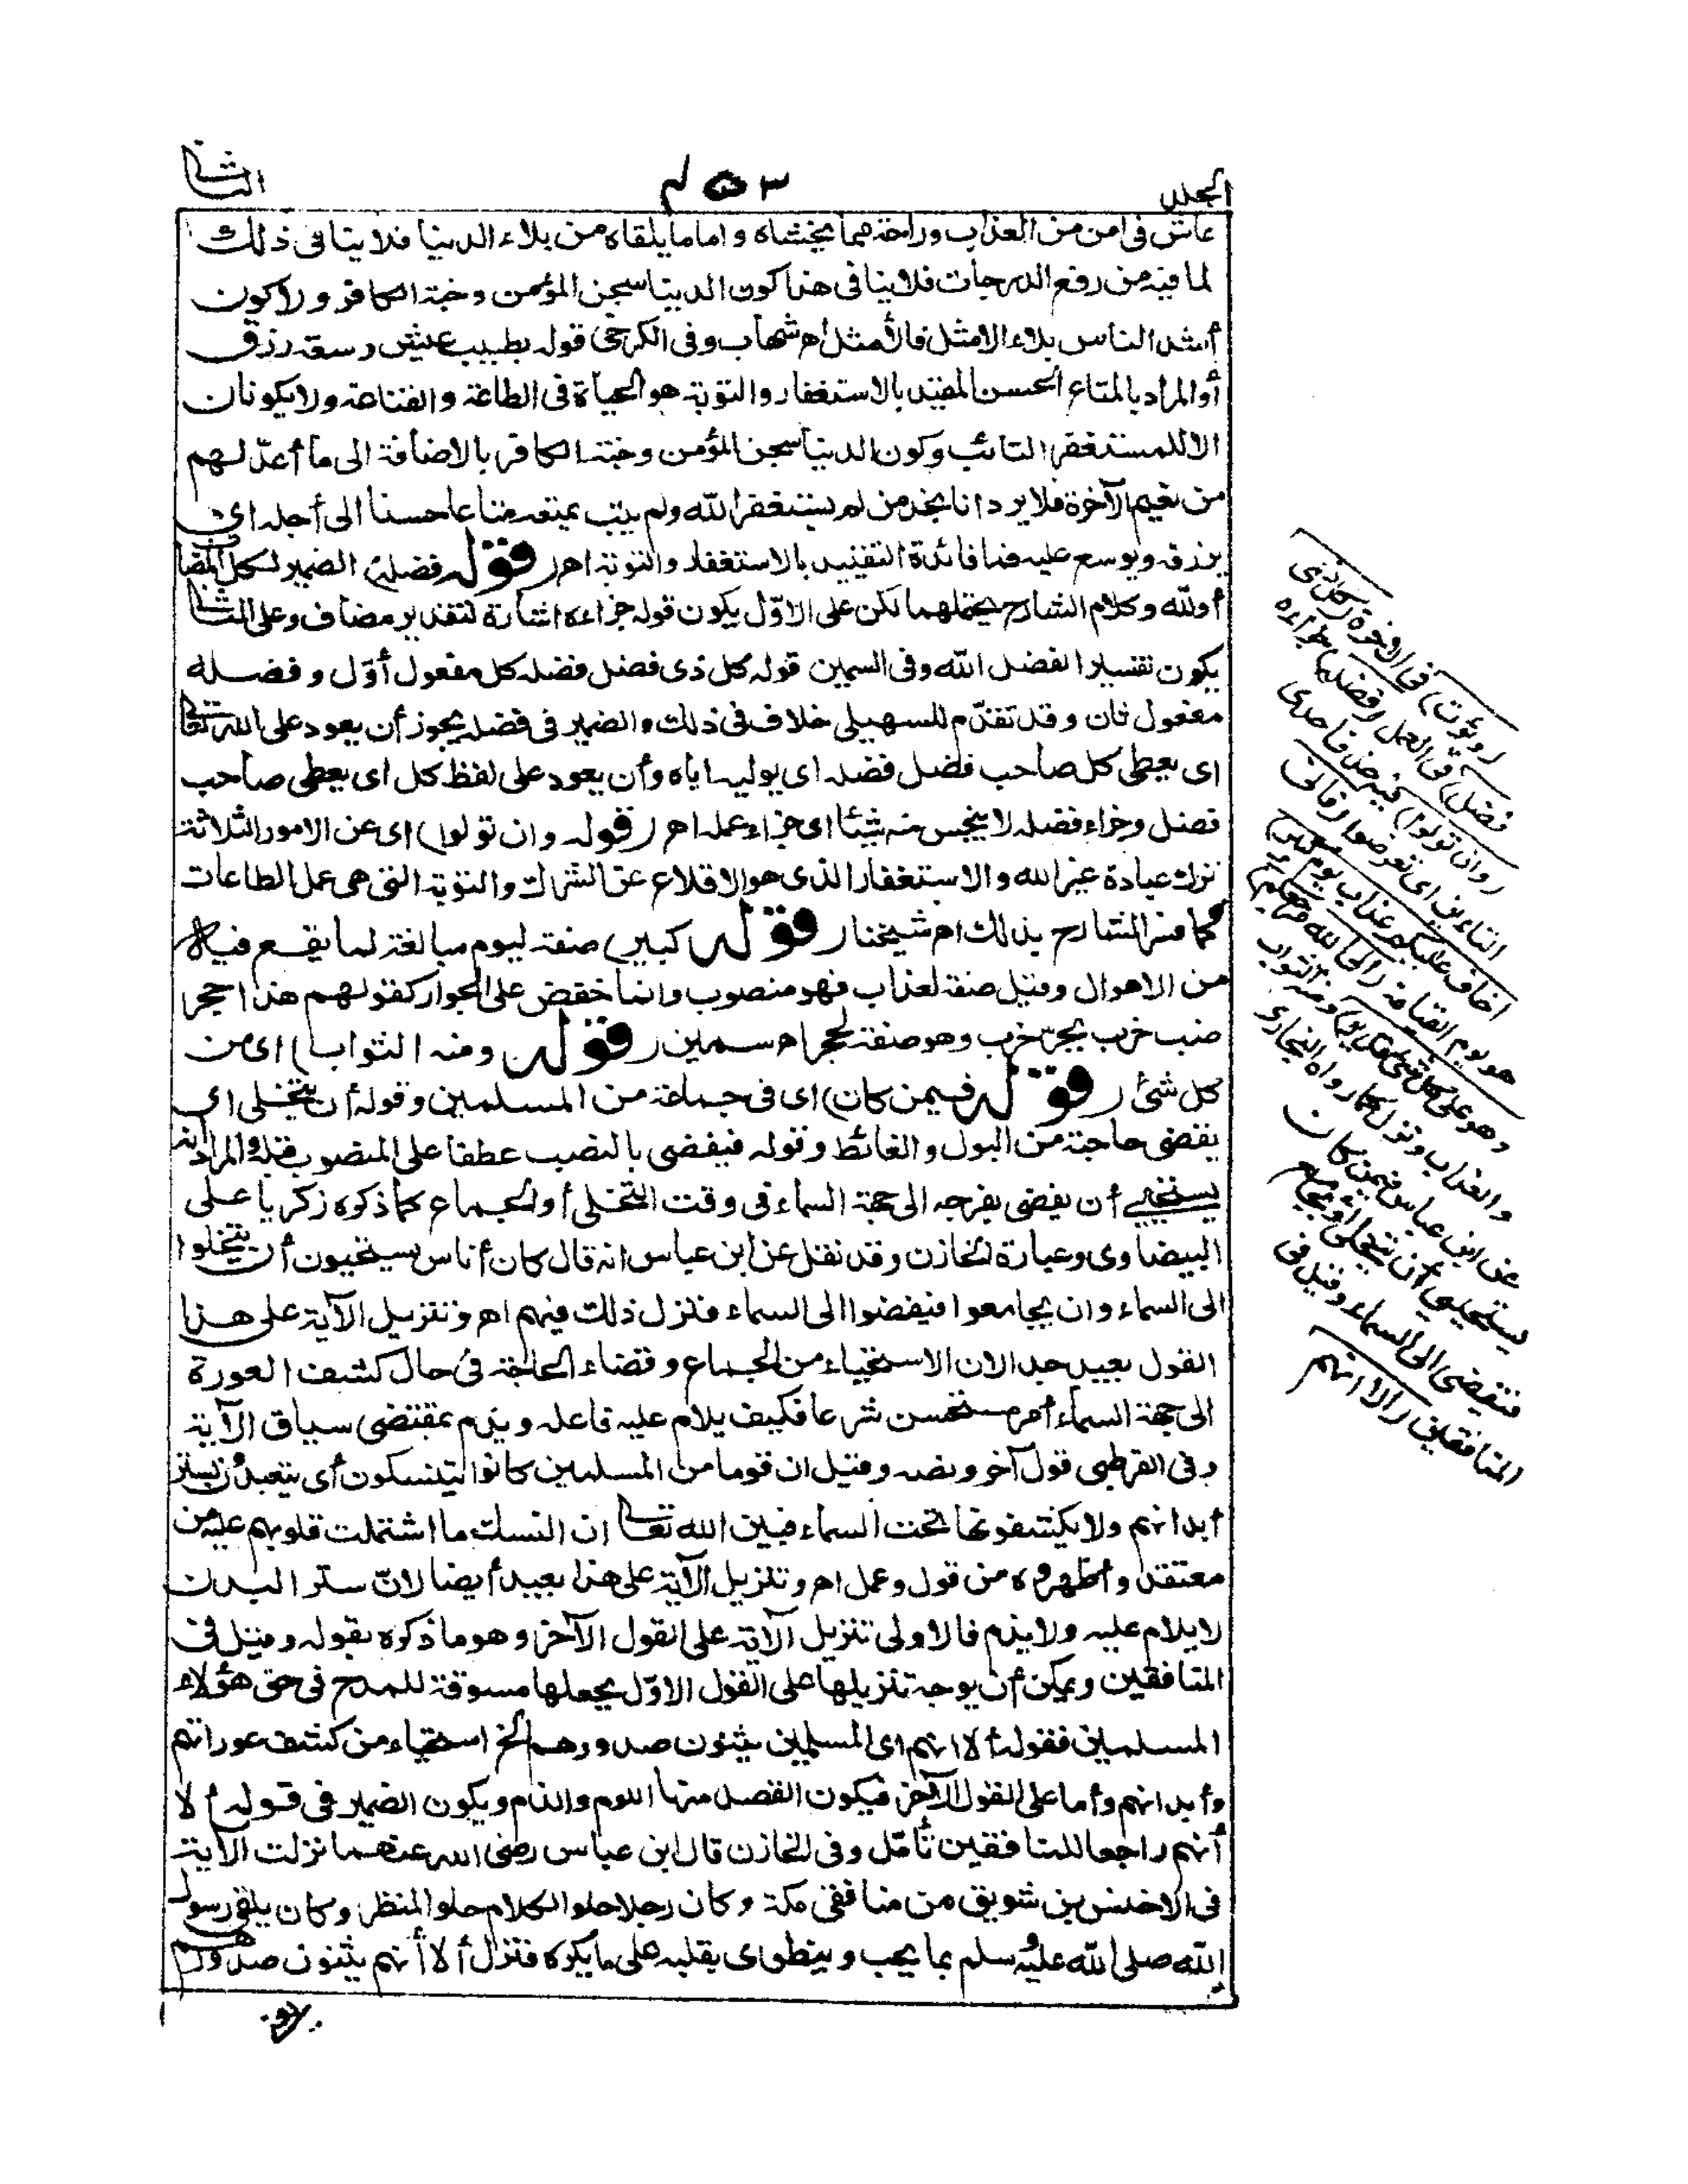 المجلد
٤٥٣
الثاني
عاش فى امن من العذاب وراحة مما يخشاه واما ما يلقاه من بلاء الدنيا فلا ينافى ذلك
لما فيه من رفع الدرجات فلا ينافى هذا كون الدنيا سجن المؤمن وجنة الكافر ولا كون
أشد الناس بلاء الامثل فالأمثل اه شهاب وفى الكرخى قوله بطيب عيش وسعة رزق
أو المراد بالمتاع الحسن المقيد بالاستغفار والتوبة هو الحياة فى الطاعة والقناعة ولا يكونان
الا للمستغفر التائب وكون الدنيا سجن المؤمن وجنة الكافر بالاضافة الى ما أعدّ لهم
من نعيم الآخرة فلا يرد انا نجد من لم يستغفر الله ولم يتب يمتعه متاعا حسنا الى أجله اى
يرزقه ويوسع عليه فما فائدة التقييد بالاستغفار والتوبة اه (قوله فضله) الضمير لكل المضاف
أو لله وكلام الشارح يحتملهما لكن على الاوّل يكون قوله جزاءه اشارة لتقدير مضاف وعلى الثانى
يكون تفسيرا لفضل الله وفى السمين قوله كل ذى فضل فضله كل مفعول أوّل وفضله
مفعول ثان وقد تقدّم للسهيلى خلاف فى ذلك والضمير فى فضله يجوز أن يعود على الله تعالى
اى يعطى كل صاحب فضل فضله اى يوليه اياه وأن يعود على لفظ كل اى يعطى صاحب
فضل وجزاء فضله لا يبخس منه شيئا اى جزاء عمله اه (قوله وان تولوا) اى عن الامور الثلاثة
ترك عبادة غير الله والاستغفار الذى هو الاقلاع عن الشرك والتوبة التى هى عمل الطاعات
كما فسر الشارح بذلك اه شيخنا (قوله كبير) صفة ليوم مبالغة لما يقع فيه
من الاهوال وقيل صفة لعذاب فهو منصوب وانما خفض على الجوار كقولهم هذا جحر
ضب خرب بجر خرب وهو صفة لجحر اه سمين (قوله ومنه الثواب) اى من
كل شئ (قوله فيمن كان) اى فى جماعة من المسلمين وقوله أن يتخلى اى
يقضى حاجته من البول والغائط وقوله فيفضى بالنصب عطفا على المنصوب قبله والمراد انه
يستحيى أن يفضى بفرجه الى جهة السماء فى وقت التخلى أو الجماع كما ذكره زكريا على
البيضاوى وعبارة الخازن وقد نقل عن ابن عباس انه قال كان أناس يستحيون أن يتخلوا
الى السماء وان يجامعوا فيفضوا الى السماء فنزل ذلك فيهم اه وتنزيل الآية على هذا
القول بعيد جدا لان الاستحياء من الجماع وقضاء الحاجة فى حال كشف العورة
الى جهة السماء أمر مستحسن شرعا فكيف يلام عليه فاعله ويذم بمقتضى سياق الآية
وفى القرطبى قول آخر ونصه وقيل ان قوما من المسلمين كانوا يتنسكون أى يتعبدون بستر
أبدانهم ولا يكشفونها تحت السماء فبين الله تعالى ان النسك ما اشتملت قلوبهم عليه من
معتقد وأظهروه من قول وعمل اه وتنزيل الآية على هذا بعيد أيضا لانّ ستر البدن
لا يلام عليه ولا يذم فالاولى تنزيل الآية على القول الآخر وهو ما ذكره بقوله وقيل فى
المنافقين ويمكن أن يوجه تنزيلها على القول الاوّل بجعلها مسوقة للمدح فى حق هؤلاء
المسلمين فقوله ألا انهم اى المسلمين يثنون صدورهم الخ استحياء من كشف عوراتهم
وأبدانهم وأما على القول الآخر فيكون القصد منها اللوم والذم ويكون الضمير فى قوله ألا
أنهم راجعا للمنافقين تأمّل وفى الخازن قال ابن عباس رضى الله عنهما نزلت الآية
فى الاخنس بن شريق من منافقى مكة وكان رجلا حلو الكلام حلو المنظر وكان يلقى رسول
الله صلى الله عليه وسلم بما يحب وينطوى بقلبه على ما يكره فنزل ألا أنهم يثنون صدورهم
(ويؤت) فى الآخرة (كل ذى
فضل) فى العمل (فضله) جزاءه
(وان تولوا) فيه حذف احدى
التاءين اى تعرضوا (فانى
اخاف عليكم عذاب يوم كبير)
هو يوم القيامة (الى الله مرجعكم
وهو على كل شئ قدير) ومنه الثواب
والعذاب ونزل كما رواه البخارى
عن ابن عباس فيمن كان
يستحيى أن يتخلى أو يجامع
فيفضى الى السماء وقيل فى
المنافقين (ألا انهم